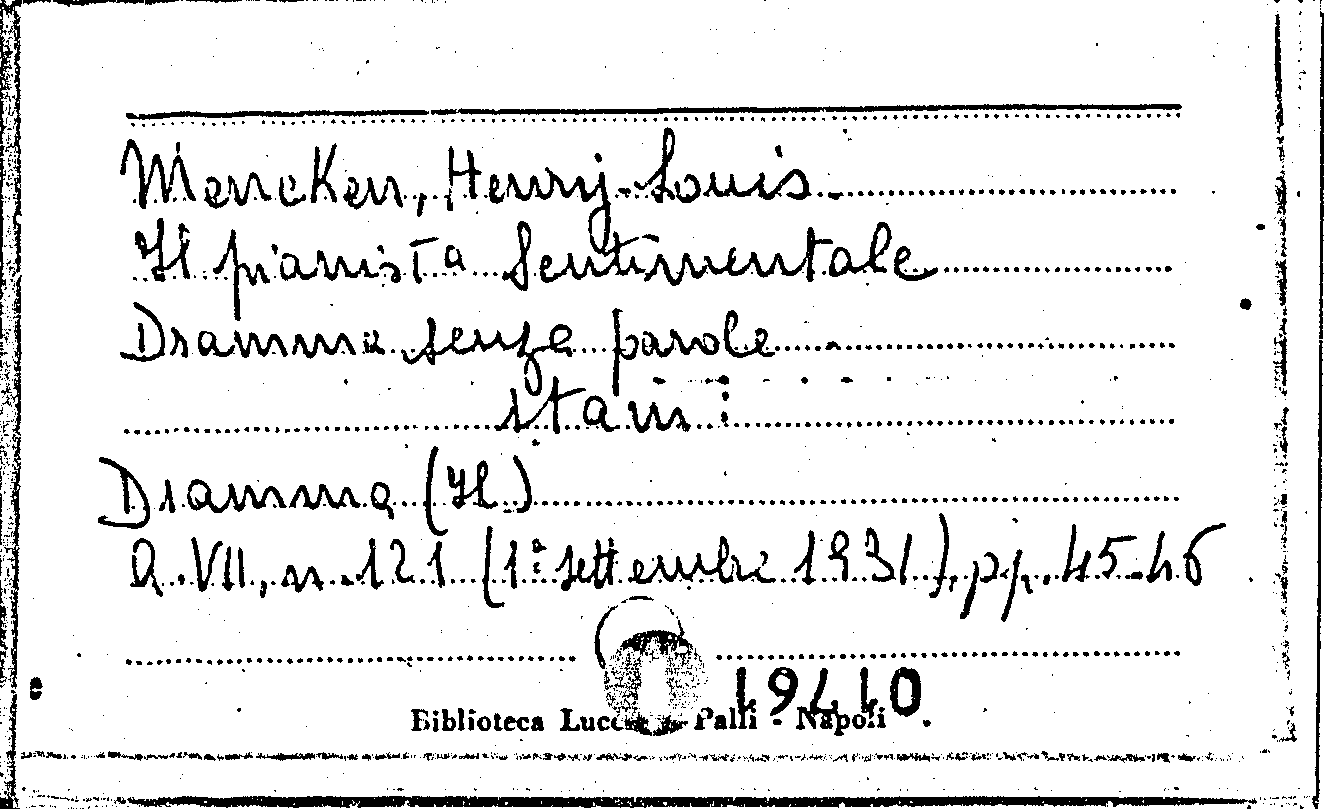 Mencken, Henry-Louis
Il pianista sentimentale
Dramma senza parole
sta in:
Dramma (Il)
a. VII, n. 121 (1° settembre 1931), pp. 45-46
Biblioteca Lucchesi - Palli - Napoli